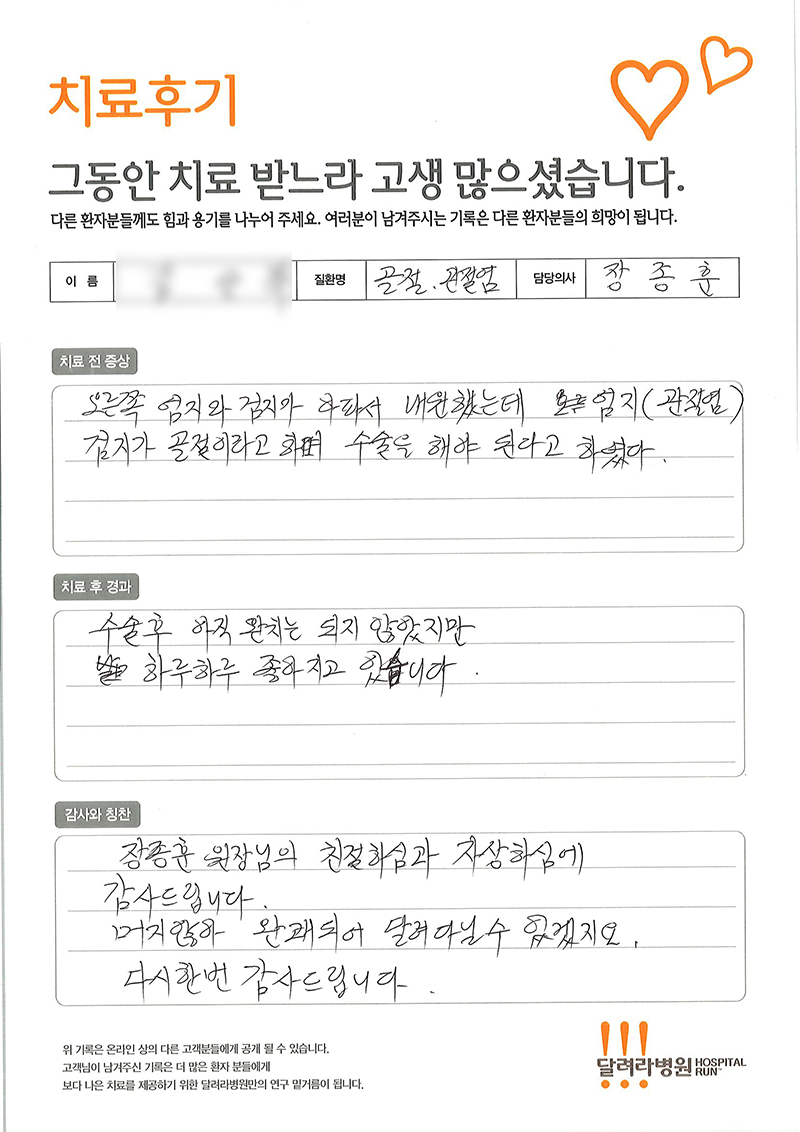 치료후기
그동안 치료 받느라 고생 많으셨습니다.
다른 환자분들께도 힘과 용기를 나누어 주세요. 여러분이 남겨주시는 기록은 다른 환자분들의 희망이 됩니다.
이 름 질환명 골절. 관절염 담당의사 장 종 훈
치료 전 증상
오른쪽 엄지와 검지가 아파서 내원했는데 엄지(관절염)
검지가 골절이라고 하며 수술을 해야 된다고 하였다.
치료 후 경과
수술후 아직 완치는 되지 않았지만
하루하루 좋아지고 있습니다.
감사와 칭찬
장종훈 원장님의 친절하심과 자상하심에
감사드립니다.
머지않아 완쾌되어 달려다닐수 있겠지요.
다시한번 감사드립니다.
위 기록은 온라인 상의 다른 고객분들에게 공개 될 수 있습니다.
고객님이 남겨주신 기록은 더 많은 환자 분들에게
보다 나은 치료를 제공하기 위한 달려라병원만의 연구 밑거름이 됩니다.
!!!
달려라병원 HOSPITAL RUN™